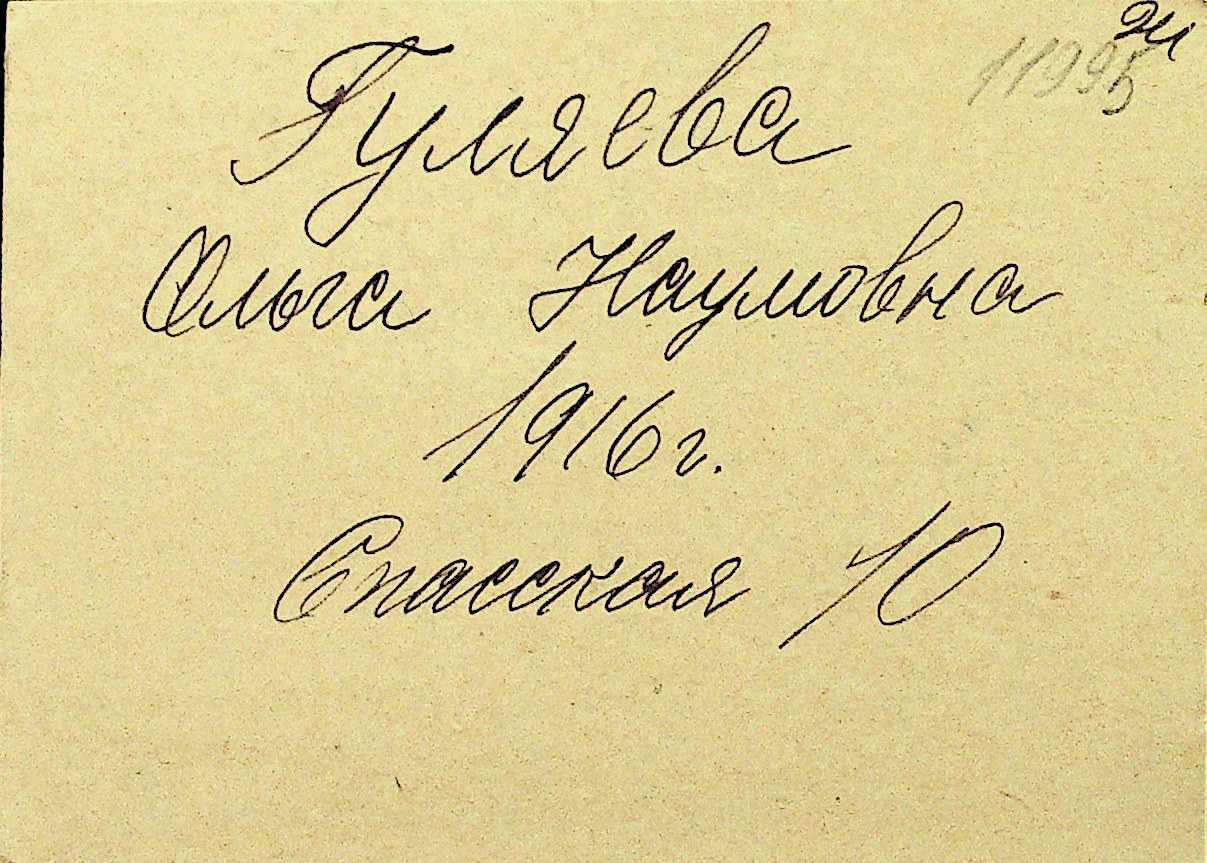 11995
Гуляева
Ольга Наумовна
1916г.
Спасская 10